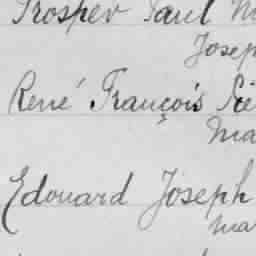 Prosper Paul
Josep
René François
Ma
Edouard Joseph
Ma